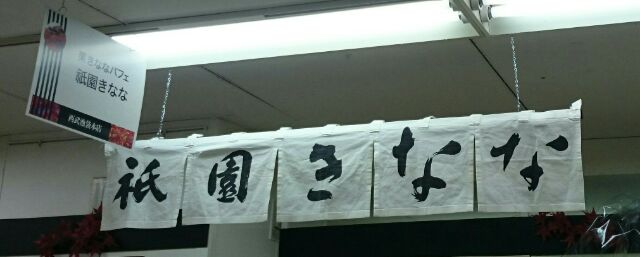 栗きななパフェ
祇園きなな
西武池袋本店
祇園きなな